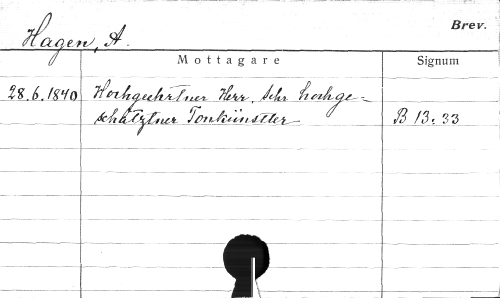 Hagen, A.
Brev.
Mottagare
Signum
28.6.1840 Hochgeehrtner Herr, Sehr hochge-
schätztner Tonkünstler B 13:33